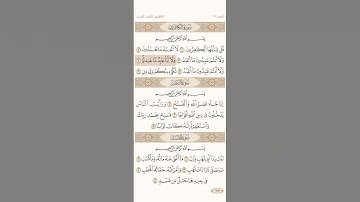 سورة الكافرون
بسم الله الرحمن الرحيم
قل يا أيها الكافرون ١ لا أعبد ما تعبدون ٢
ولا أنتم عابدون ما أعبد ٣ ولا أنا عابد ما عبدتم ٤
ولا أنتم عابدون ما أعبد ٥ لكم دينكم ولي دين ٦
سورة النصر
بسم الله الرحمن الرحيم
إذا جاء نصر الله والفتح ١ ورأيت الناس
يدخلون في دين الله أفواجا ٢ فسبح بحمد ربك
واستغفره إنه كان توابا ٣
سورة المسد
بسم الله الرحمن الرحيم
تبت يدا أبي لهب وتب ١ ما أغنى عنه ماله وما كسب ٢
سيصلى نارا ذات لهب ٣ وامرأته حمالة الحطب ٤
في جيدها حبل من مسد ٥